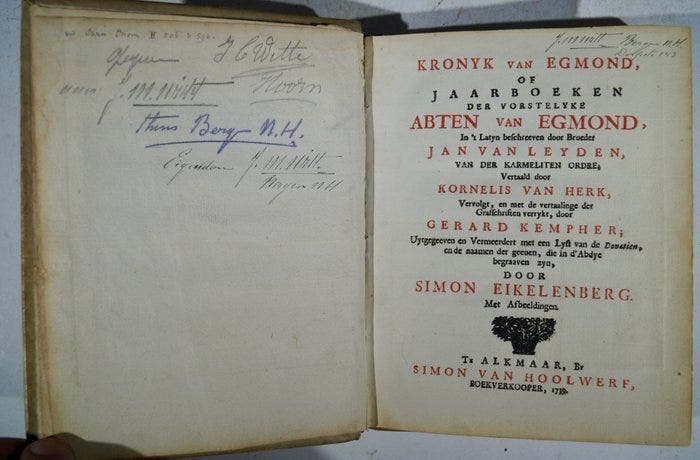 J C Witte
Hoorn
J. M. Witt
thuis Berg N.H.
Eigendom J. M. Witt
Bergen N H
J. M. Witt Bergen N.H.
KRONYK VAN EGMOND,
OF
JAARBOEKEN
DER VORSTELYKE
ABTEN VAN EGMOND,
In 't Latyn beschreeven door Broeder
JAN VAN LEYDEN,
VAN DER KARMELITEN ORDRE;
Vertaald door
KORNELIS VAN HERK,
Vervolgt, en met de vertaalinge der
Grafschriften verrykt, door
GERARD KEMPHER;
Uytgegeeven en Vermeerdert met een Lyst van de Donatien,
en de naamen der geenen, die in d'Abdye
begraaven zyn,
DOOR
SIMON EIKELENBERG.
Met Afbeeldingen.
TE ALKMAAR, BY
SIMON VAN HOOLWERF,
BOEKVERKOOPER, 1739.